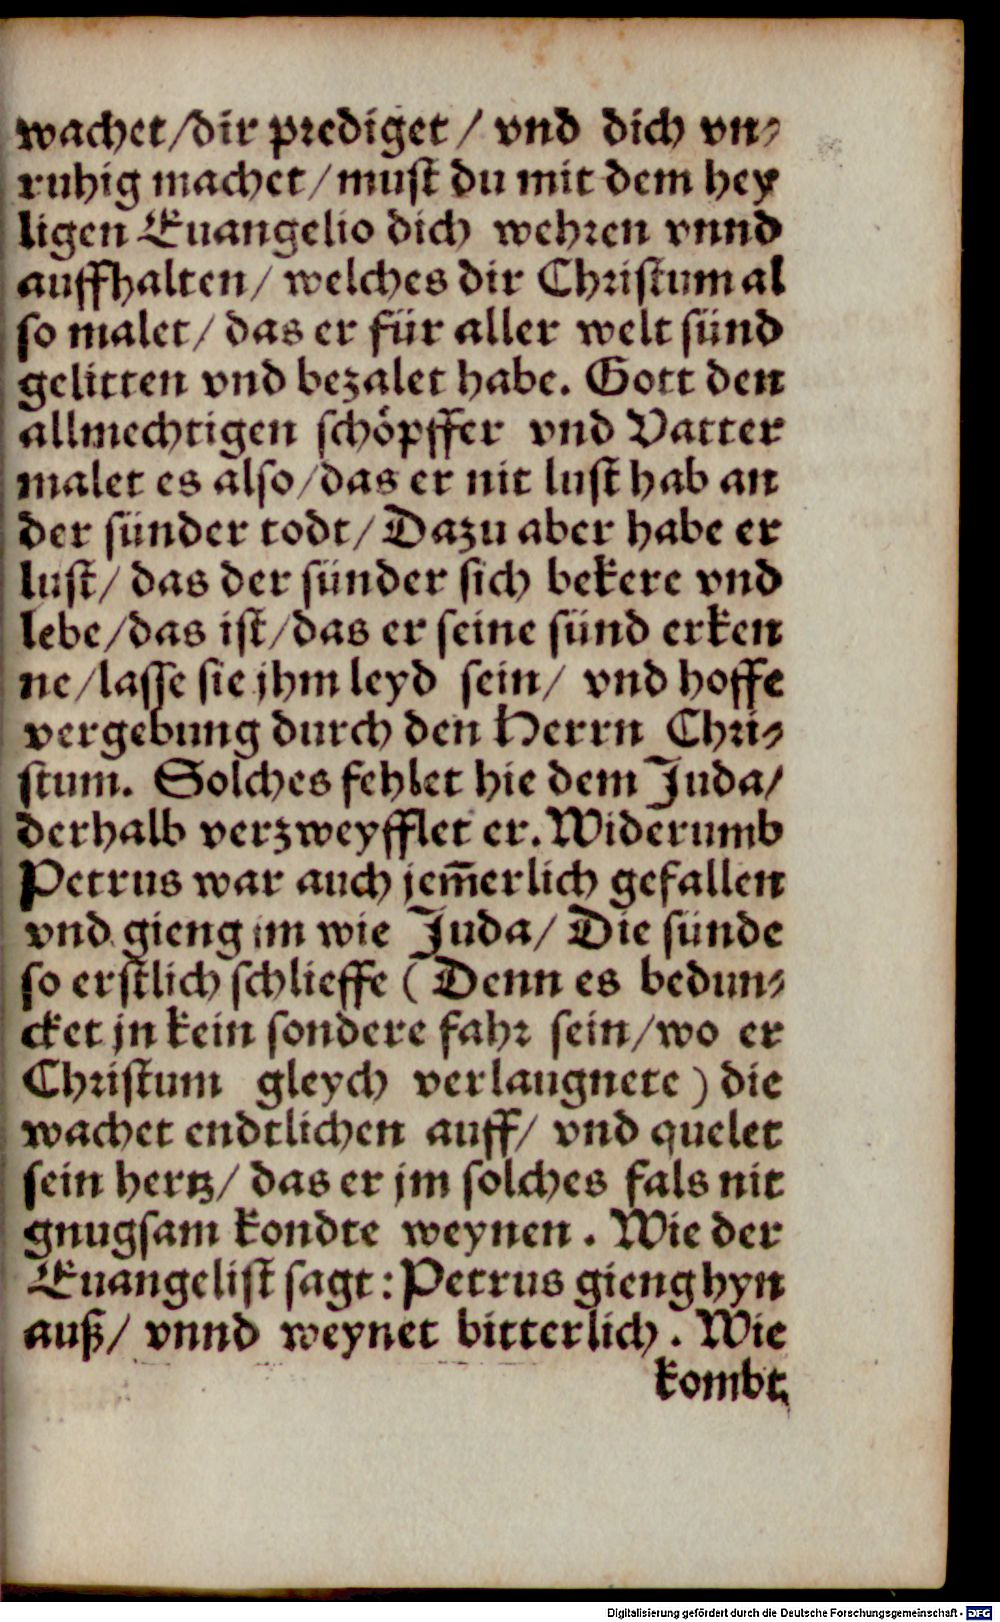 wachet/dir prediget / vnd dich vn⸗
ruhig machet/must du mit dem hey
ligen Euangelio dich wehren vnnd
auffhalten/ welches dir Christum al
so malet/ das er für aller welt sünd
gelitten vnd bezalet habe. Gott den
allmechtigen schöpffer vnd Vatter
malet es also/das er nit lust hab an
der sünder todt/ Dazu aber habe er
lust/ das der sünder sich bekere vnd
lebe/das ist/das er seine sünd erken
ne/lasse sie jhm leyd sein/ vnd hoffe
vergebung durch den Herrn Chri⸗
stum. Solches fehlet hie dem Juda/
derhalb verzweyfflet er. Widerumb
Petrus war auch jem̃erlich gefallen
vnd gieng im wie Juda/ Die sünde
so erstlich schlieffe (Denn es bedun⸗
cket jn kein sondere fahr sein/wo er
Christum gleych verlaugnete) die
wachet endtlichen auff/ vnd quelet
sein hertz/ das er jm solches fals nit
gnugsam kondte weynen. Wie der
Euangelist sagt: Petrus gieng hyn
auß/ vnnd weynet bitterlich. Wie
kombt
Digitalisierung gefördert durch die Deutsche Forschungsgemeinschaft - DFG